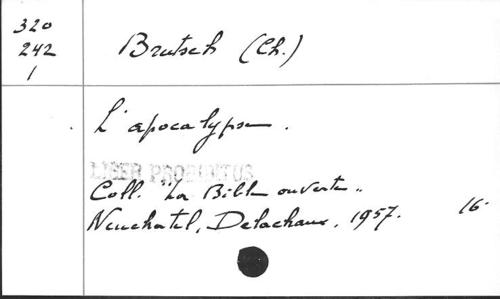 320
242
1
Brutsch (Ch.)
L'apocalypse.
LIBER PROHIBITUS
Coll. "La Bible ouverte".
Neuchatel, Delachaux, 1957. 16°